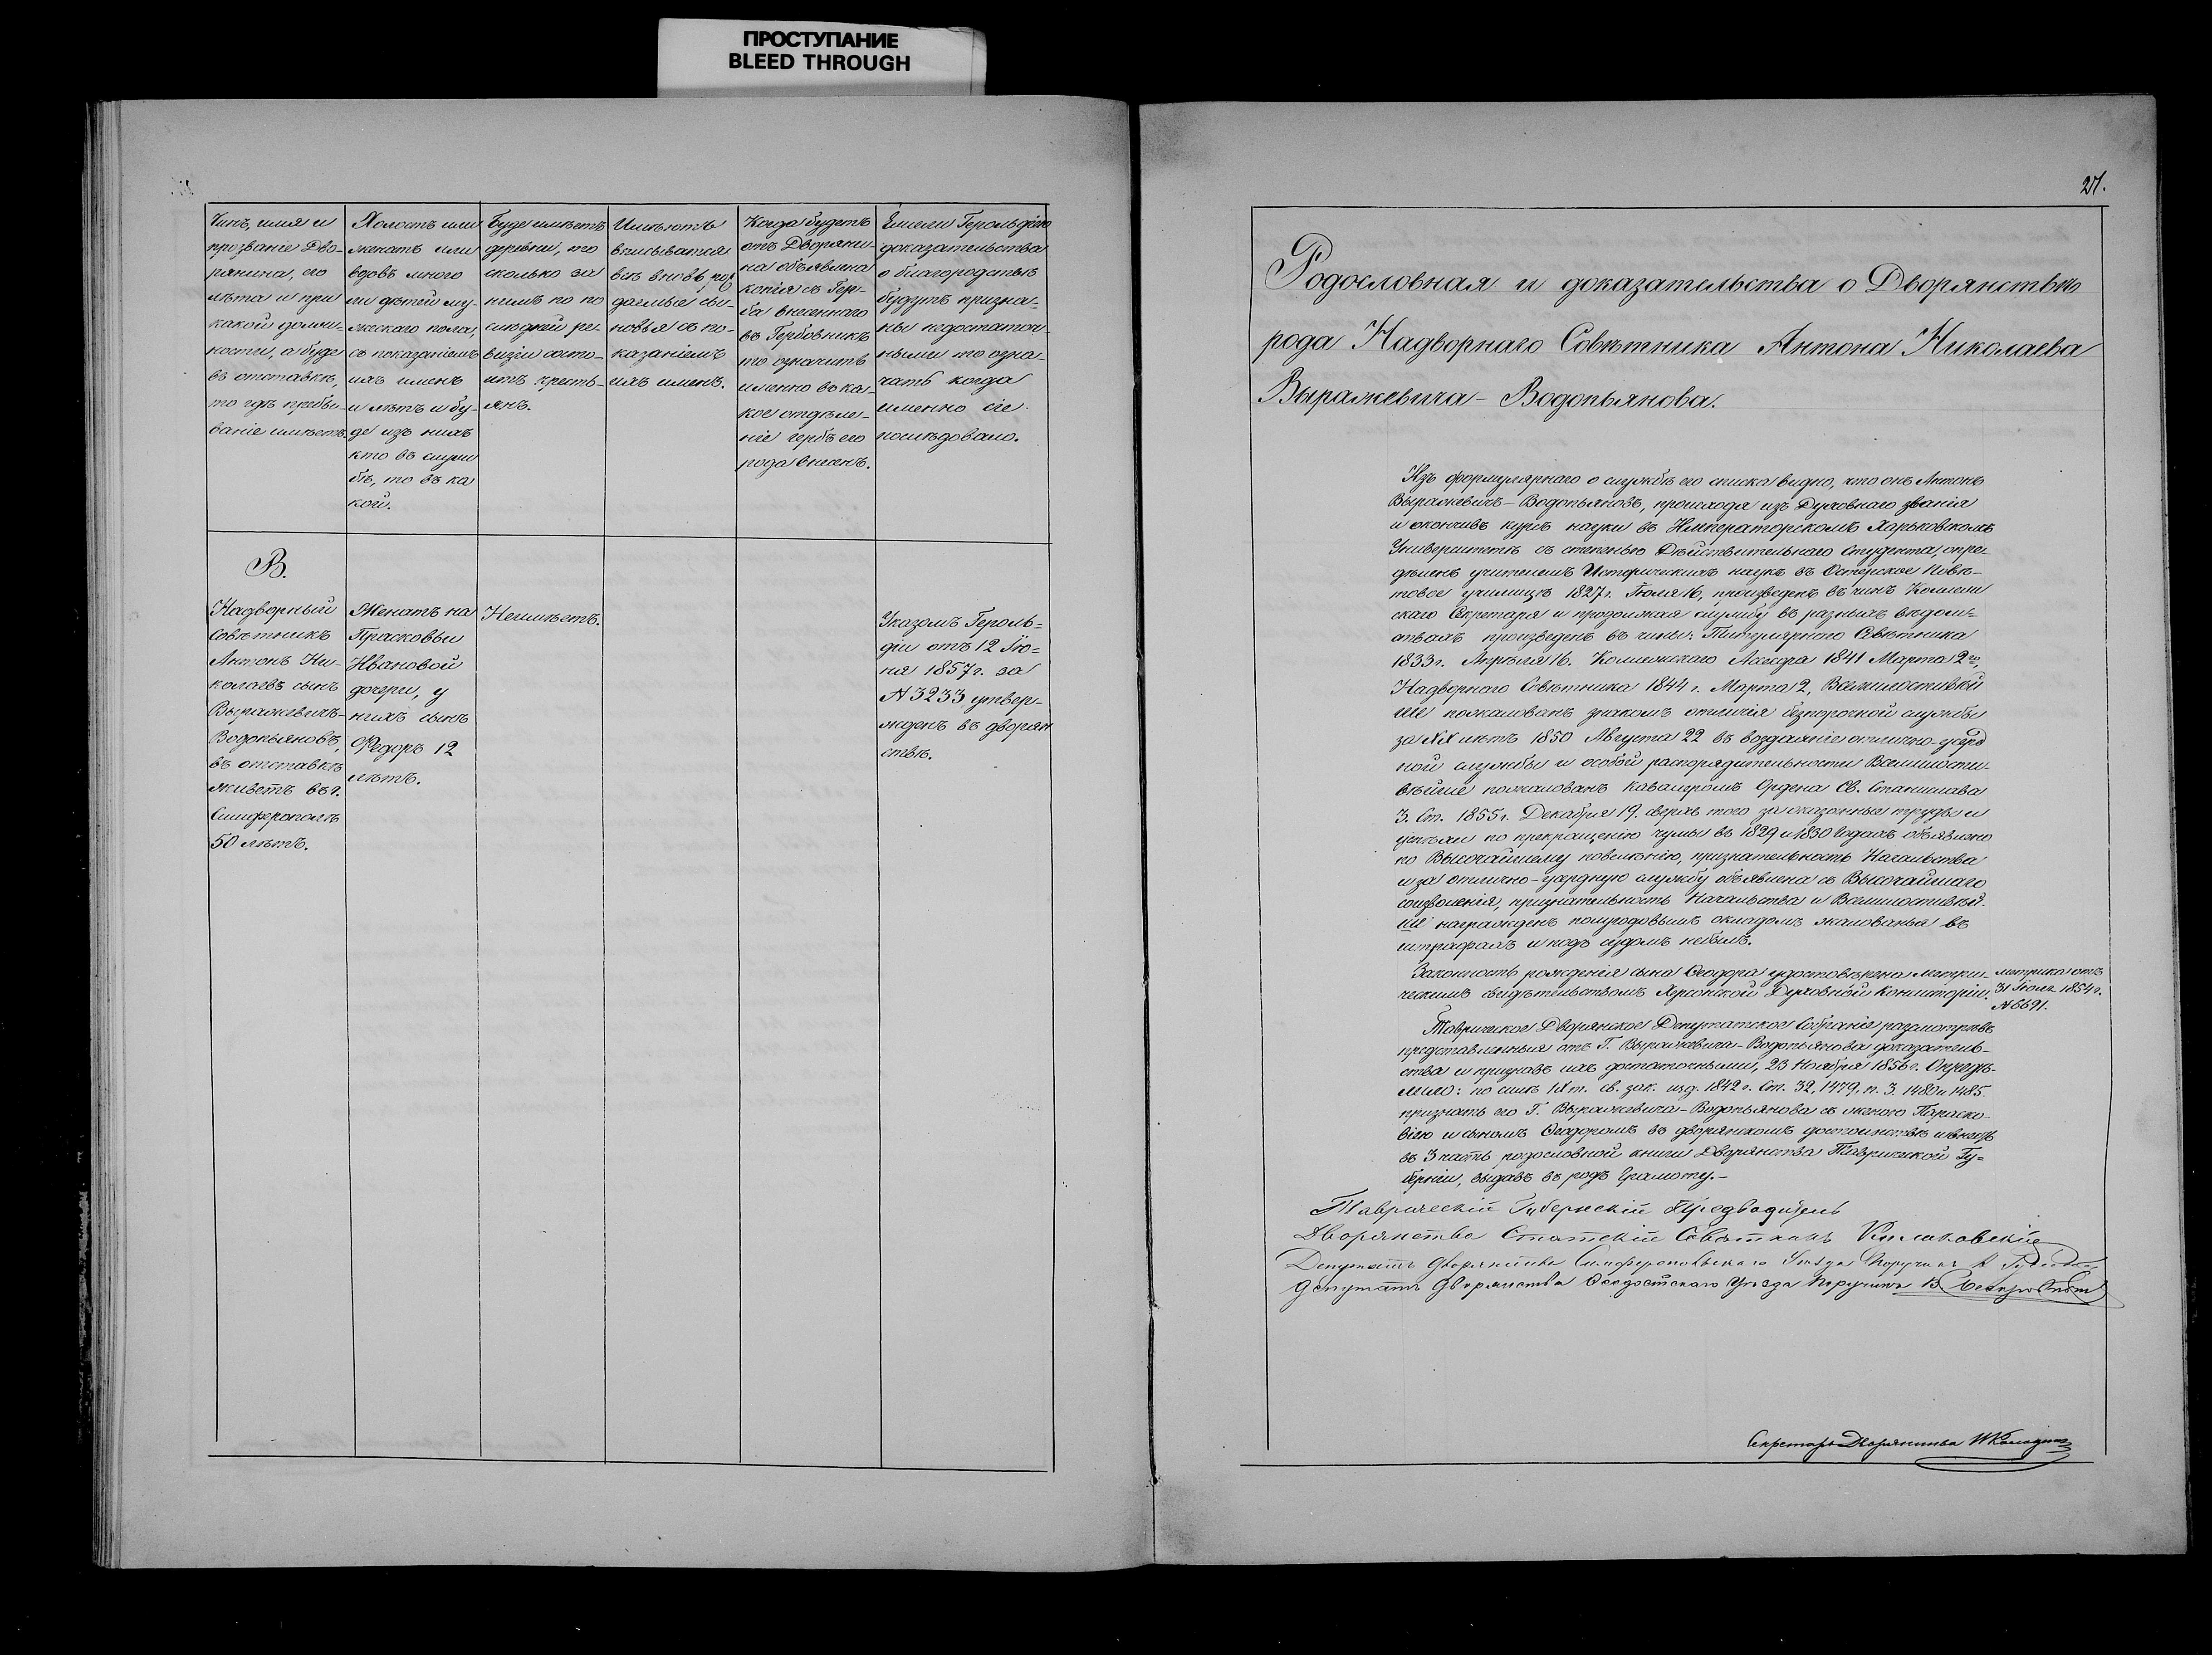 ПРОСТУПАНИЕ
BLEED THROUGH
Чинъ, имя и
прозваніе Дво-
рянина, его
лѣта и при
какой должн-
ности, а буде
въ отставкѣ,
то гдѣ пребы-
ваніе имѣетъ.
Холостъ или
женатъ или
вдовъ много
ли дѣтей му-
жескаго пола,
съ показаніемъ
ихъ именъ
и лѣтъ и бу-
де изъ нихъ
кто въ служ
бѣ, то въ ка
кой.
Буде имѣетъ
деревни, то
сколько за
нимъ по по
слѣдней ре-
визіи состо-
итъ кресть-
янъ.
Имѣютъ
вписыватся
въ вновь, рож
даемые сы-
новья съ по-
казаніемъ
ихъ именъ.
Когда будетъ
отъ Дворяни-
на объявлена
копія съ Гер-
ба внесеннаго
въ Гербовникъ
то означить
именно въ ка-
кое отдѣле-
ніе гербъ его
рода внесенъ.
Ежели Герольдіею
доказательства
о благородствѣ
будутъ призна-
ны недостаточ-
ными то озна-
чать когда
именно сіе
послѣдовало.
В.
Надворный
Совѣтникъ
Антонъ Ни-
колаевъ сынъ
Выражевичъ-
Водопьяновъ,
въ отставкѣ
живетъ въ г.
Симферополѣ
50 лѣтъ.
Женатъ на
Прасковьи
Ивановой
дочери, у
нихъ сынъ
Федоръ 12
лѣтъ.
Неимѣетъ.
Указомъ Героль-
діи отъ 12 Iю-
ня 1857 г. за
№ 3233 утвер-
жденъ въ дворян
ствѣ.
21.
Родословная и доказательства о Дворянствѣ
рода Надворнаго Совѣтника Антона Николаева
Выражевича - Водопьянова.
Изъ формулярнаго о службѣ его списка видно, что онъ Антонъ
Выражевичъ - Водопьяновъ, происходя изъ Духовнаго званія
и окончивъ курсъ науки въ Императорскомъ Харьковскомъ
Университетѣ съ степенью Дѣйствительнаго Студента, опре-
дѣленъ учителемъ Историческихъ наукъ въ Остерское Повѣ-
товое училище 1827 г. Iюля 16, произведенъ въ чинъ Коллеж
скаго Секретаря и продолжая службу въ разныхъ вѣдом-
ствахъ произведенъ въ чины: Титулярнаго Совѣтника
1833 г. Апрѣля 16. Коллежскаго Асессора 1841 Марта 2го,
Надворнаго Совѣтника 1844 г. Марта 2, Всемилостивѣй
ше пожалованъ знакомъ отличія безпорочной службы
за XX лѣтъ 1850 Августа 22 въ воздаяніе отлично-усерд
ной службы и особой распорядительности Всемилости-
вѣйше пожалованъ Кавалеромъ Ордена Св. Станислава
3. Ст. 1855 г. Декабря 19. сверхъ того за оказанные труды и
успѣхи по прекращенію чумы въ 1829 и 1830 годахъ объявлено
по Высочайшему повелѣнію, признательность Начальства
и за отлично-усердную службу объявлена съ Высочайшаго
соизволенія, признательность Начальства и Всемилостивѣй-
ше награжденъ полугодовымъ окладомъ жалованья въ
штрафахъ и подъ судомъ небылъ.
Законность рожденія сына Ѳеодора удостовѣрена метри-
ческимъ свидѣтельствомъ Херсонской Духовной Консисторіи.
метрика отъ
31 Iюля 1854 г.
№ 6691.
Таврическое Дворянское Депутатское Собраніе разсмотрѣвъ
представленныя отъ Г. Выражевича - Водопьянова доказатель-
ства и признавъ ихъ достаточными, 23 Ноября 1856 г. Опредѣ-
лило: по силѣ IX т. св. зак. изд. 1842 г. Ст. 32, 1479, п. 3. 1480 и 1485.
признать его Г. Выражевича - Водопьянова съ женою Параско-
віею и сыномъ Ѳеодоромъ въ дворянскомъ достоинствѣ и внесть
въ 3 часть родословной книги Дворянства Таврической Гу-
берніи, выдавъ въ родъ грамоту.-
Таврическій Губернскій Предводитель
Дворянства Статскій Совѣтникъ
Депутатъ Дворянства Симферопольскаго Уѣзда Поручикъ
Депутатъ Дворянства Ѳеодосійскаго Уѣзда Поручикъ В
Секретарь Дворянства